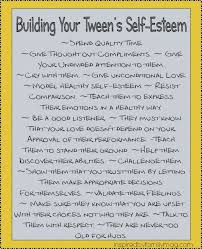 Building Your Tween's Self-Esteem
~Spend Quality Time
~Give Thoughtout Compliments ~Give
Your Undivided Attention to Them
~Cry with them ~Give Unconditional Love
~Model Healthy Self-Esteem ~Resist
Comparison ~Teach Them to Express
Their Emotions in a Healthy Way
~Be a Good Listener ~They Must Know
that Your Love Doesn't Depend on Your
Approval of Their Performance ~Teach
Them to Stand Their Ground ~Help Them
Discover Their Abilities ~Challenge Them
~Show Them that You Trust Them by Letting
Them Make Appropriate Decisions
for Themselves ~Validate Their Feelings
~Make Sure They Know that You Are Upset
with Their Choices Not Who They Are ~Talk to
Them with Respect ~They Are Never too
Old for Hugs
inspiredbyfamilymag.com